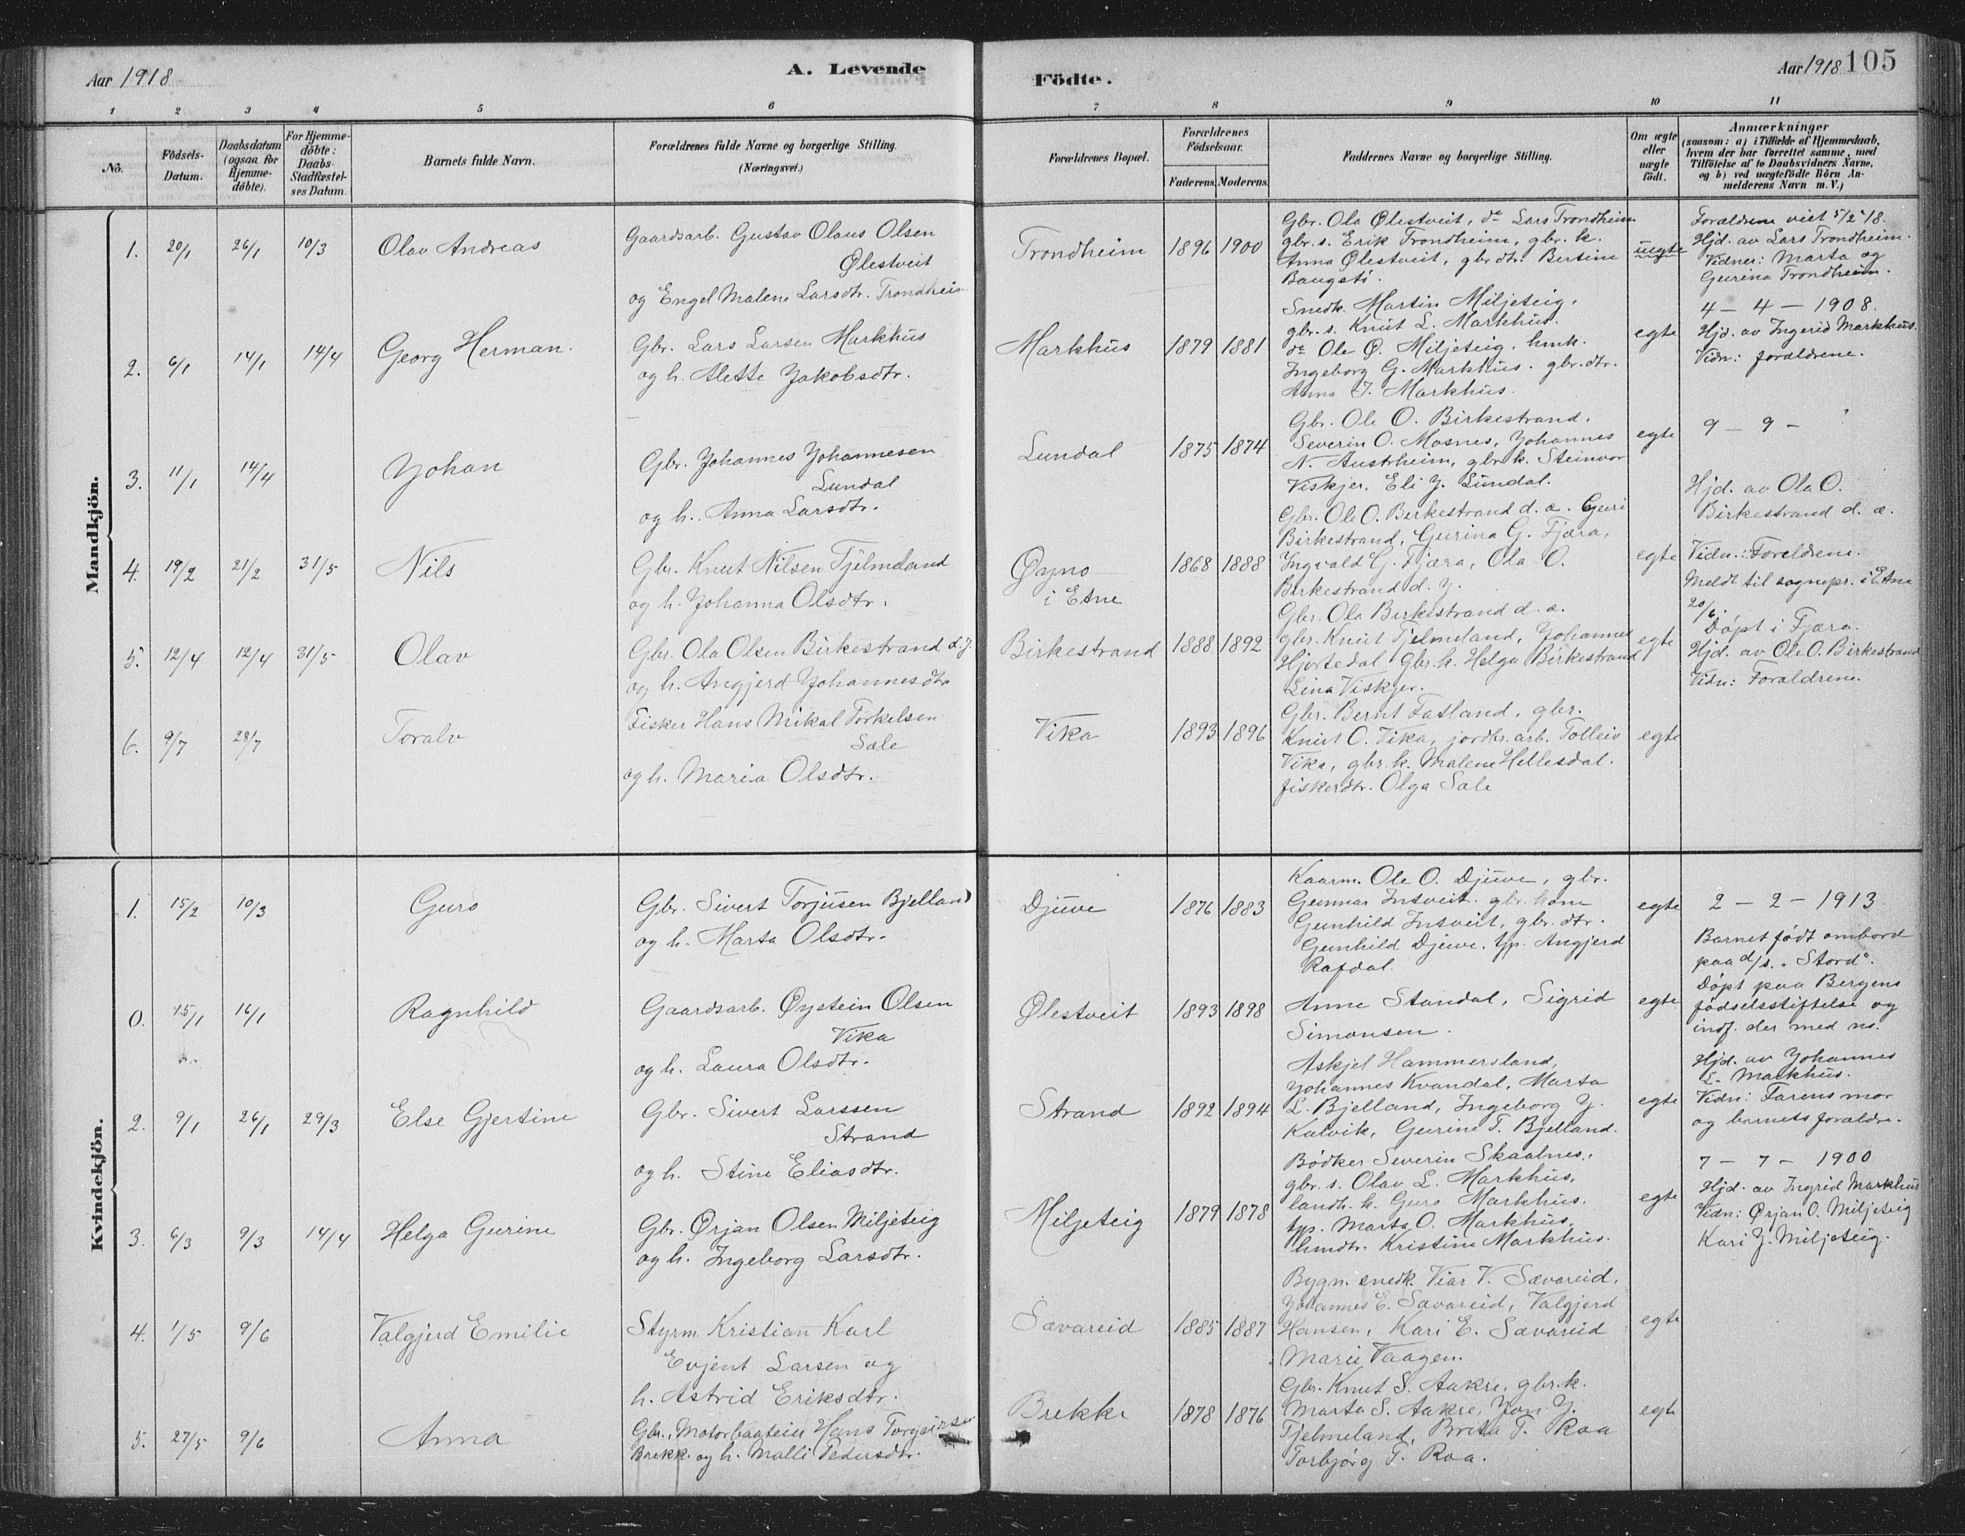 Aar 1918
A. Levende
Födte.
Aar 1918
105
1 2 3 4 5 6 7 8 9 10 11
No.
Födsels-
Datum.
Daabsdatum
(ogsaa for
Hjemme-
döbte).
For Hjemme-
döbte:
Daabs-
Stadfæstel-
ses Datum.
Barnets fulde Navn.
Forældrenes fulde Navne og borgerlige Stilling.
(Næringsvei.)
Forældrenes Bopæl.
Forældrenes
Födselsaar.
Faderens. Moderens.
Faddernes Navne og borgerlige Stilling.
Om ægte
eller
uægte
födt.
Anmærkninger
(saasom: a) i Tilfælde af Hjemmedaab,
hvem der har forrettet samme, med
Tilföielse af to Daabsvidners Navne,
og b) ved uægtefödte Börn An-
melderens Navn m. V.)
Mandkjön.
1. 20/1 26/1 10/3 Olav Andreas
Gaardsarb. Gustav Olaus Olsen
Ølestveit
og Engel Malene Larsdtr. Trondheim
Trondheim 1896 1900
Gbr. Ola Ølestveit, do Lars Trondheim
gbr. s. Erik Trondheim, gbr. k.
Anna Ølestveit, gbr. dtr. Bertine
Baugstö.
uegte
Forældrene viet 5/2 18.
Hjd. av Lars Trondheim.
Vidner: Marta og
Gurina Trondheim.
2. 6/1 14/1 14/4 Georg Herman.
Gbr. Lars Larsen Markhus
og h. Alette Jakobsdtr.
Markhus 1879 1881
Snedk. Martin Miljeteig,
gbr. s. Knut L. Markhus.
do Ole Ø. Miljeteig. hmk.
Ingeborg G. Markhus. gbr. dtr.
Anna J. Markhus.
egte
4 – 4 – 1908.
Hjd. av Ingerid Markhus.
Vidn: foraldrene.
3. 11/1 14/4 Johan
Gbr. Johannes Johannesen
Lundal
og h. Anna Larsdtr.
Lundal 1875 1874
Gbr. Ole O. Birkestrand,
Severin O. Mosnes, Johannes
N. Austrheim, gbr. k. Steinvor
Viskjer. Eli J. Lundal.
egte
9 – 9 –
4. 19/2 21/2 31/5 Nils
Gbr. Knut Nilsen Tjelmeland
og h. Johanna Olsdtr.
Øyno
i Etne
1868 1888
Gbr. Ole O. Birkestrand d. æ. Guri
Birkestrand, Gurina G. Fjæra,
Ingvald G. Fjæra, Ola O.
Birkestrand d. y.
egte
Hjd. av Ola O.
Birkestrand d. æ.
Vidn.: Foreldrene.
Meldt til sognepr. i Etne
20/6.
Döpt i Fjæra.
5. 12/4 12/4 31/5 Olav
Gbr. Ola Olsen Birkestrand d. y.
og h. Angjerd Johannesdtr.
Birkestrand 1888 1892
Gbr. Ola Birkestrand d. æ.
gbr. Knut Tjelmeland, Johannes
Hjortedal Gbr. k. Helga Birkestrand
Lina Viskjer.
egte
Hjd. av Ole O. Birkestrand
Vidn: Foraldrene.
6. 9/7 28/7 Toralv
Fisker Hans Mikal Torkelsen
Sæle
og h. Maria Olsdtr.
Vika 1893 1896
Gbr. Bernt Fatland, gbr.
Knut O. Vika, jordbr. arb. Tolleiv
Vika, gbr. k. Malene Hellesdal.
fiskerdtr. Olga Sæle
egte
Kvindekjön.
1. 15/2 10/3 Guro
Gbr. Sivert Torjusen Bjelland
og h. Marta Olsdtr.
Djuve 1876 1883
Kaarm. Ole O. Djuve, gbr.
Gunnar Intveit. gbr. kone
Gunhild Intveit, gbr. dtr.
Gunhild Djuve. tjp. Angjerd
Rafdal.
egte
2 – 2 – 1913
0. 15/1 16/1 Ragnhild
Gaardsarb. Øystein Olsen
Vika
og h. Laura Olsdtr.
Ølestveit 1893 1898
Anne Standal, Sigrid
Simonsen.
egte
Barnet født ombord
paa d/s. "Stord".
Döpt paa Bergens
födselsstiftelse og
indf. der med no.
2. 9/1 26/1 29/3 Else Gjertine
Gbr. Sivert Larssen
Strand
og h. Stine Eliasdtr.
Strand 1892 1894
Askjel Hammersland,
Johannes Kvandal, Marta
L. Bjelland, Ingeborg J.
Kalvik, Gurine T. Bjelland.
egte
Hjd. av Johannes
L. Markhus.
Vidn: Farens mor
og barnets foraldre.
3. 6/3 9/3 14/4 Helga Gurine
Gbr. Ørjan Olsen Miljeteig
og h. Ingeborg Larsdtr.
Miljeteig 1879 1878
Bödker Severin Skaalnes,
gbr. s. Olav L. Markhus,
landh. k. Guro Markhus.
tjp. Marta O. Markhus,
hmdtr. Kristine Markhus.
egte
7 – 7 – 1900
Hjd. av Ingrid Markhus
Vidn: Ørjan O. Miljeteig
Kari J. Miljeteig.
4. 1/5 9/6 Valgjerd Emilie
Styrm. Kristian Karl
Evjent Larsen og
h. Astrid Eriksdtr.
Sævareid 1885 1887
Bygn. snedk. Viar V. Sævareid,
Johannes E. Sævareid, Valgjerd
Hansen, Kari E. Sævareid
Marie Vaagen.
egte
5. 27/5 9/6 Anna
Gbr., Motorbaateier Hans Torgeirsen
Brekk. og h. Malli Pedersdtr.
Brekke 1878 1876
Gbr. Knut S. Aakre, gbr. k.
Marta S. Aakre, Jon J.
Tjelmeland, Brita T. Raa
Torbjørg T. Raa.
egte